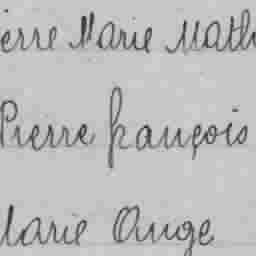 ierre Marie Math
Pierre françois
Marie Ange